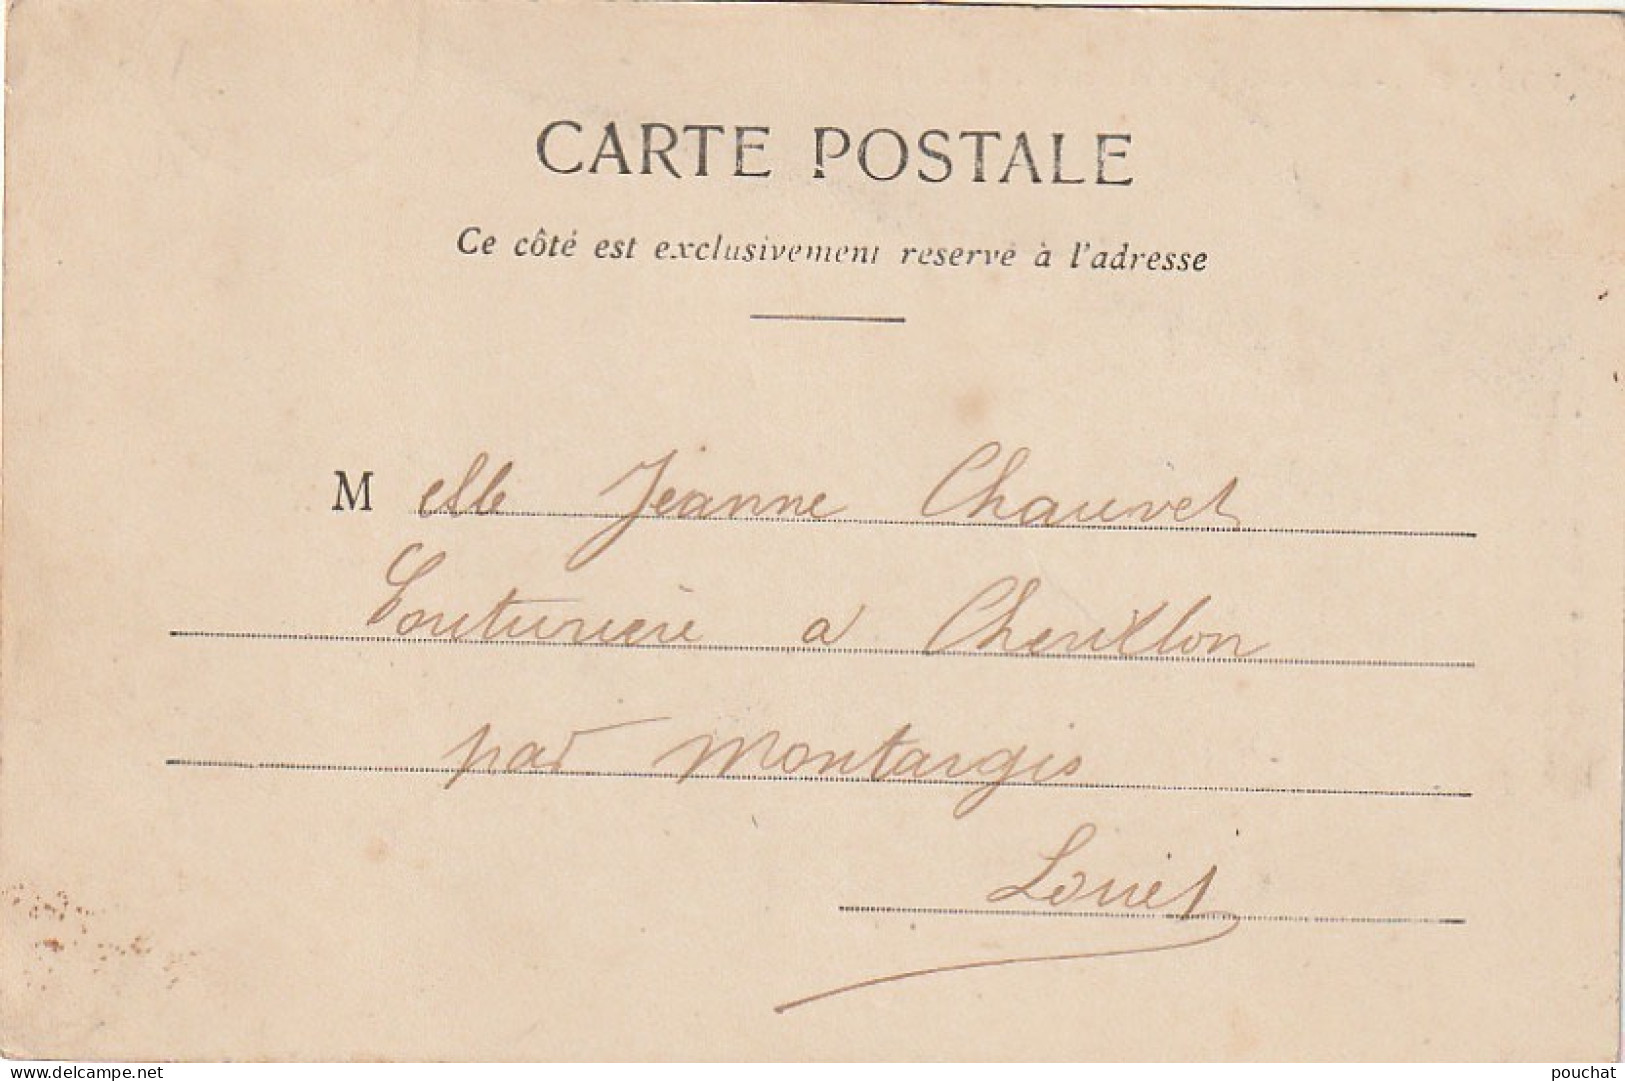 CARTE POSTALE
Ce côté est exclusivement reservé à l'adresse
M elle Jeanne Chauvet
Couturière a Chevillon
par Montargis
Loiret
www.delcampe.net
pouchat